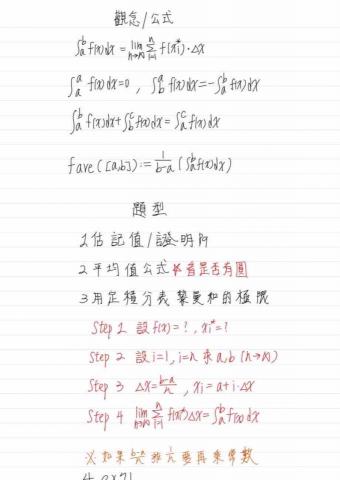 觀念/公式
∫ₐᵇ f(x)dx = lim_{n→∞} Σ_{i=1}^{n} f(xᵢ*)·Δx
∫ₐᵃ f(x)dx=0 , ∫_b^a f(x)dx=-∫ₐᵇ f(x)dx
∫ₐᵇ f(x)dx+∫_b^c f(x)dx=∫ₐᶜ f(x)dx
fave([a,b]):= 1/(b-a) (∫ₐᵇ f(x)dx)
題型
1 估記值/證明
2 平均值公式 *看是否有圓
3 用定積分表黎曼和的極限
Step 1 設f(x)=?, xᵢ*=?
Step 2 設i=1, i=n 求a,b (n→∞)
Step 3 Δx=(b-a)/n , xᵢ=a+i·Δx
Step 4 lim_{n→∞} Σ_{i=1}^{n} f(xᵢ*)Δx=∫ₐᵇ f(x)dx
※如果 (b-a)/n 非 1/n 要再乘常數